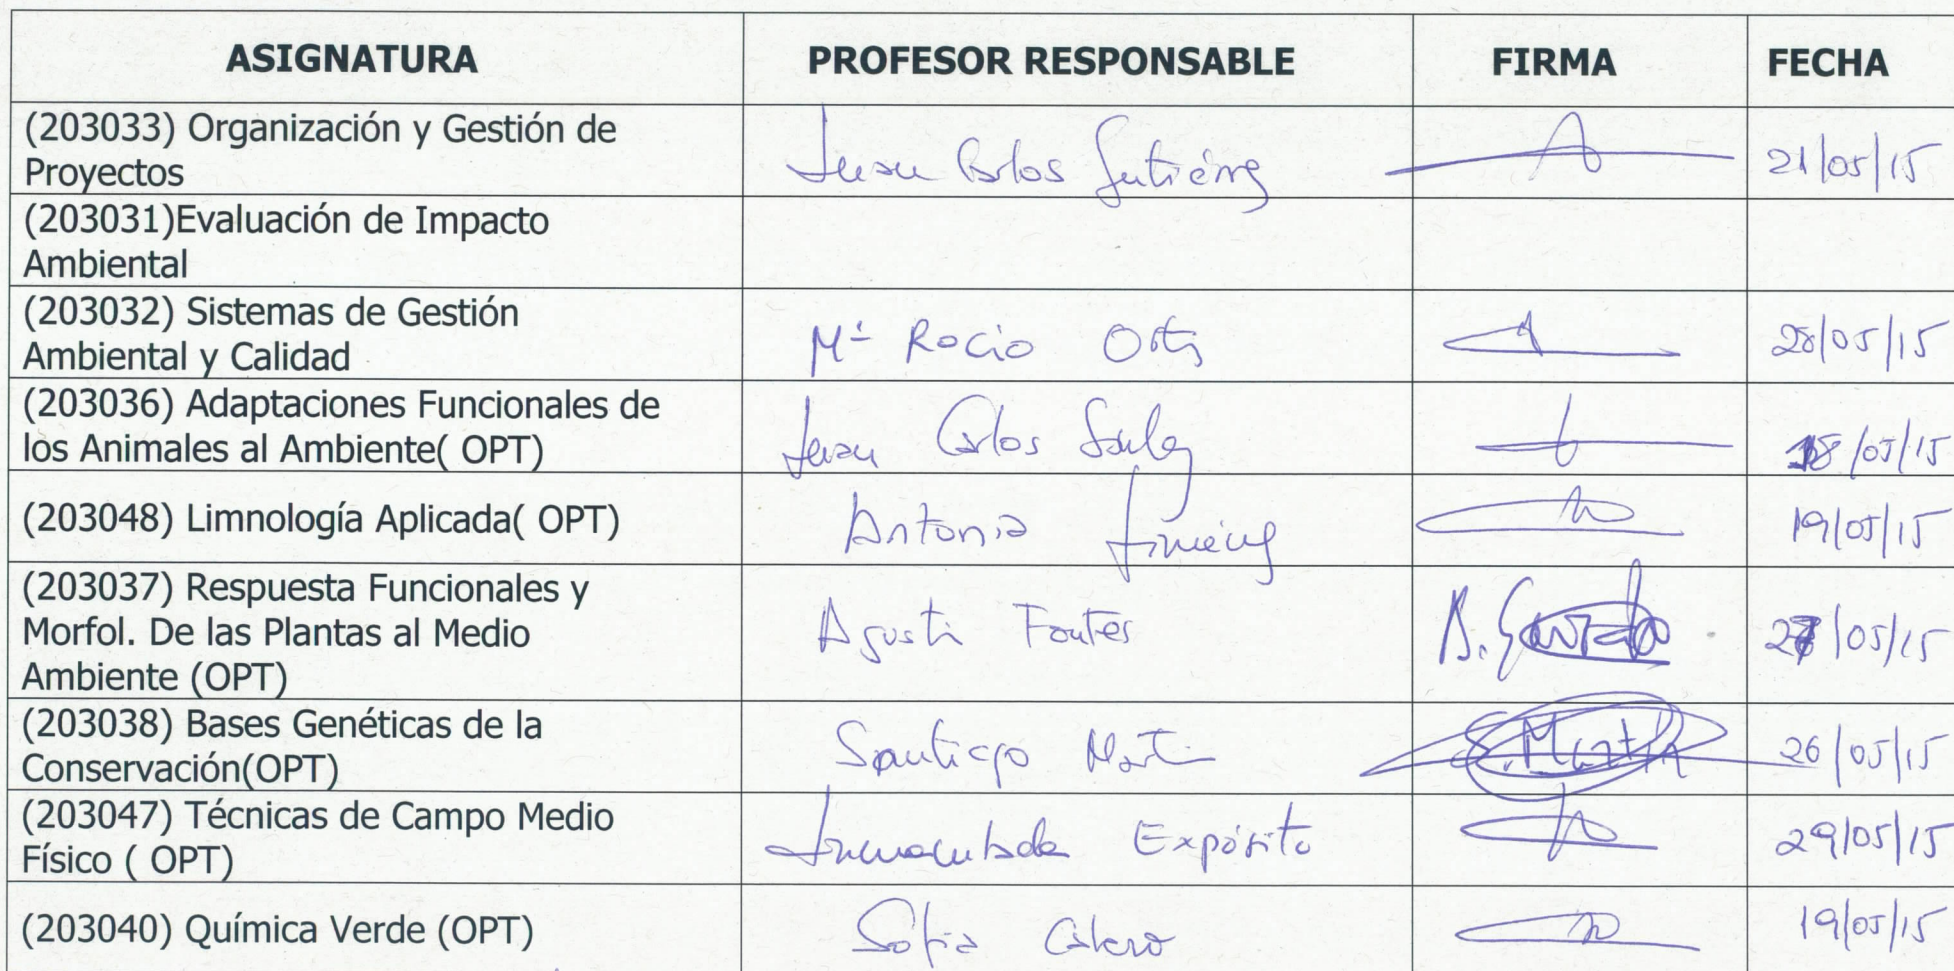 ASIGNATURA PROFESOR RESPONSABLE FIRMA FECHA
(203033) Organización y Gestión de
Proyectos
Juan Carlos Gutiérrez 21/05/15
(203031)Evaluación de Impacto
Ambiental
(203032) Sistemas de Gestión
Ambiental y Calidad
Mª Rocio Ortiz 28/05/15
(203036) Adaptaciones Funcionales de
los Animales al Ambiente( OPT)
Juan Carlos 18/05/15
(203048) Limnología Aplicada( OPT)
Antonia Jiménez 19/05/15
(203037) Respuesta Funcionales y
Morfol. De las Plantas al Medio
Ambiente (OPT)
Agustí Fontes 27/05/15
(203038) Bases Genéticas de la
Conservación(OPT)
Santiago Martín S. Martín 26/05/15
(203047) Técnicas de Campo Medio
Físico ( OPT)
Inmaculada Expósito 29/05/15
(203040) Química Verde (OPT)
Sofia Calero 19/05/15